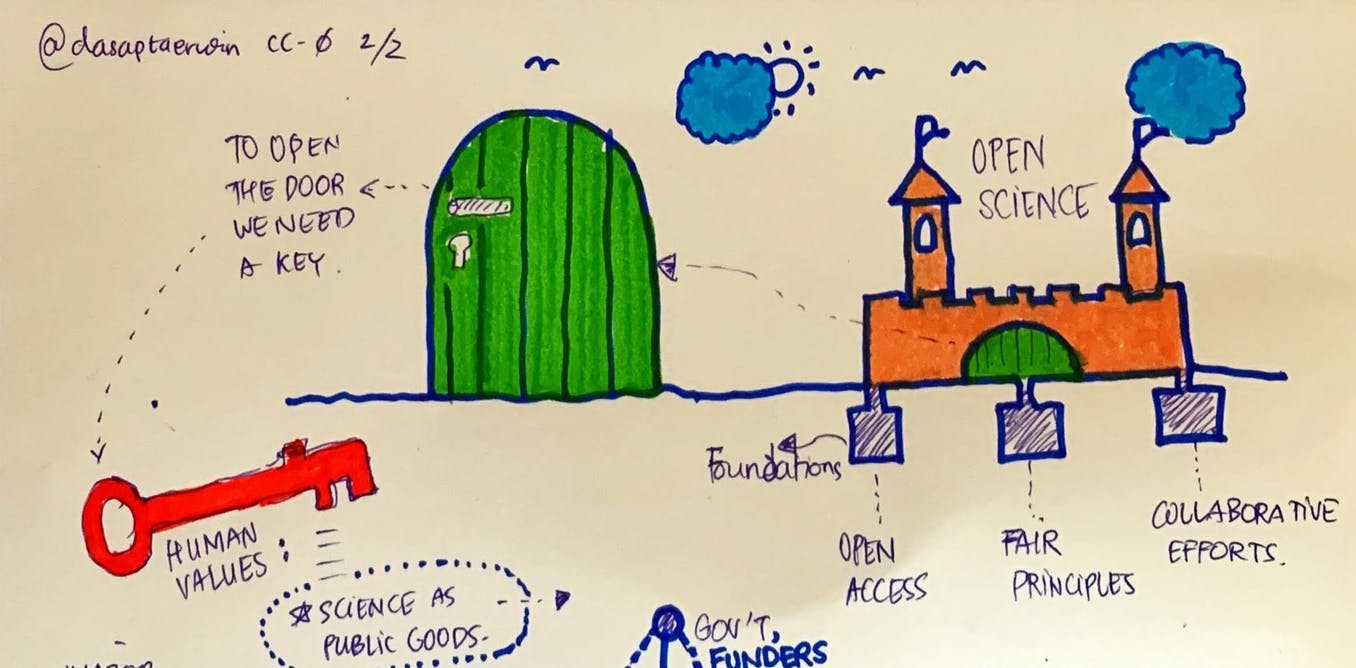 @dasaptaerwin CC-∅ 2/2
TO OPEN
THE DOOR
WE NEED
A KEY.
OPEN
SCIENCE
Foundations
OPEN
ACCESS
FAIR
PRINCIPLES
COLLABORATIVE
EFFORTS.
HUMAN
VALUES:
SCIENCE AS
PUBLIC GOODS.
GOV'T,
FUNDERS